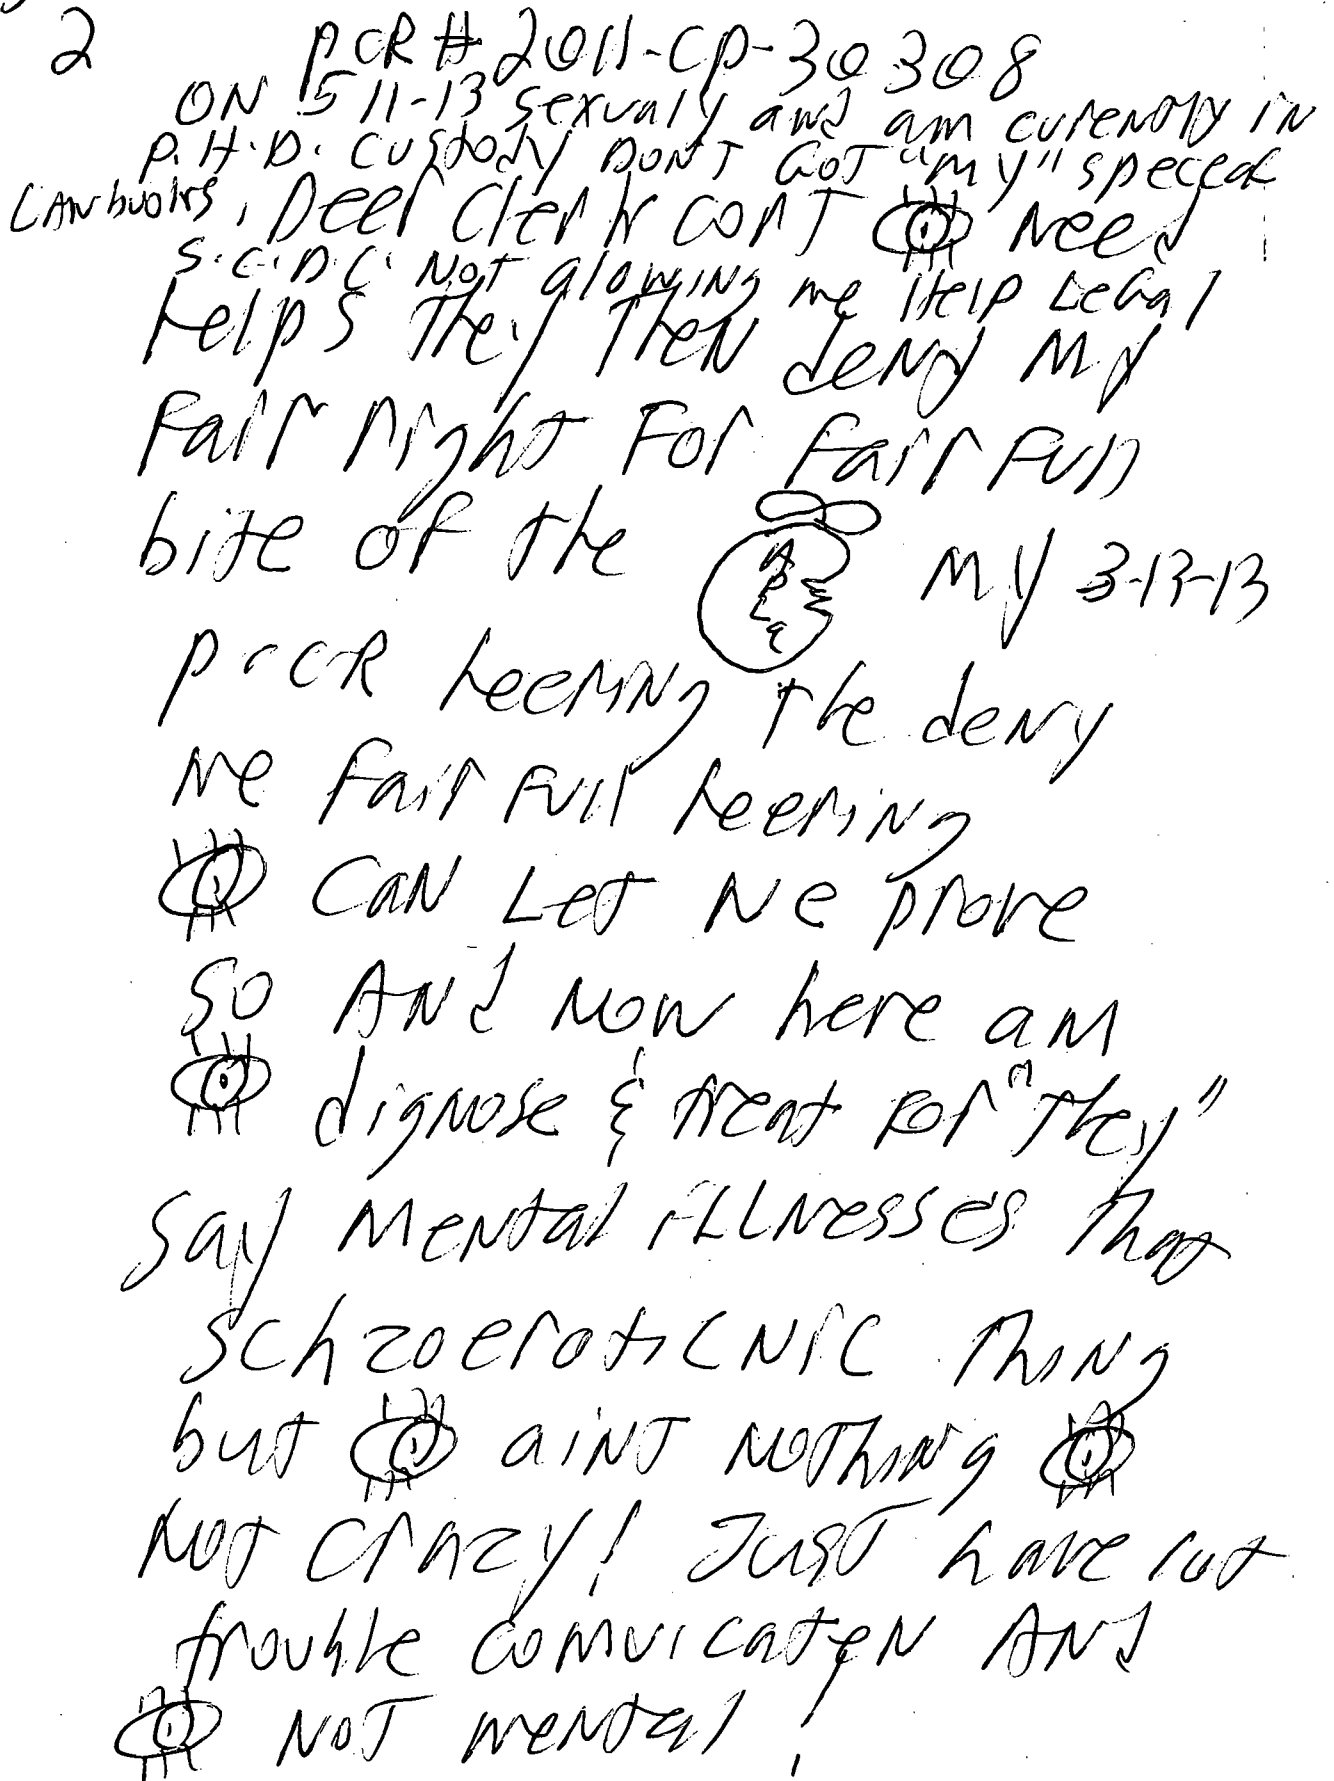 2 PCR # 2011-CP-30308
ON 5 11-13 sexualy and am curently in
P.H.D. custody DON'T GOT "MY" speceal
LAW books, Deer Clerk Cort NEED
S.C.D.C. NOT alowing me Help Legal
helps They Then deny My
Fair right For fair Full
bite of the My 3-13-13
P.C.R heering the deny
Me Fair Full heering
CaN Let Me prove
SO ANd Now here am
dignose & treat For "They"
say Mental iLLNesses That
schzoeroticNic ThiNg
but aiNT NOThiNg
Not crazy! Just have lot
trouble comuicateN ANd
NOT mental!